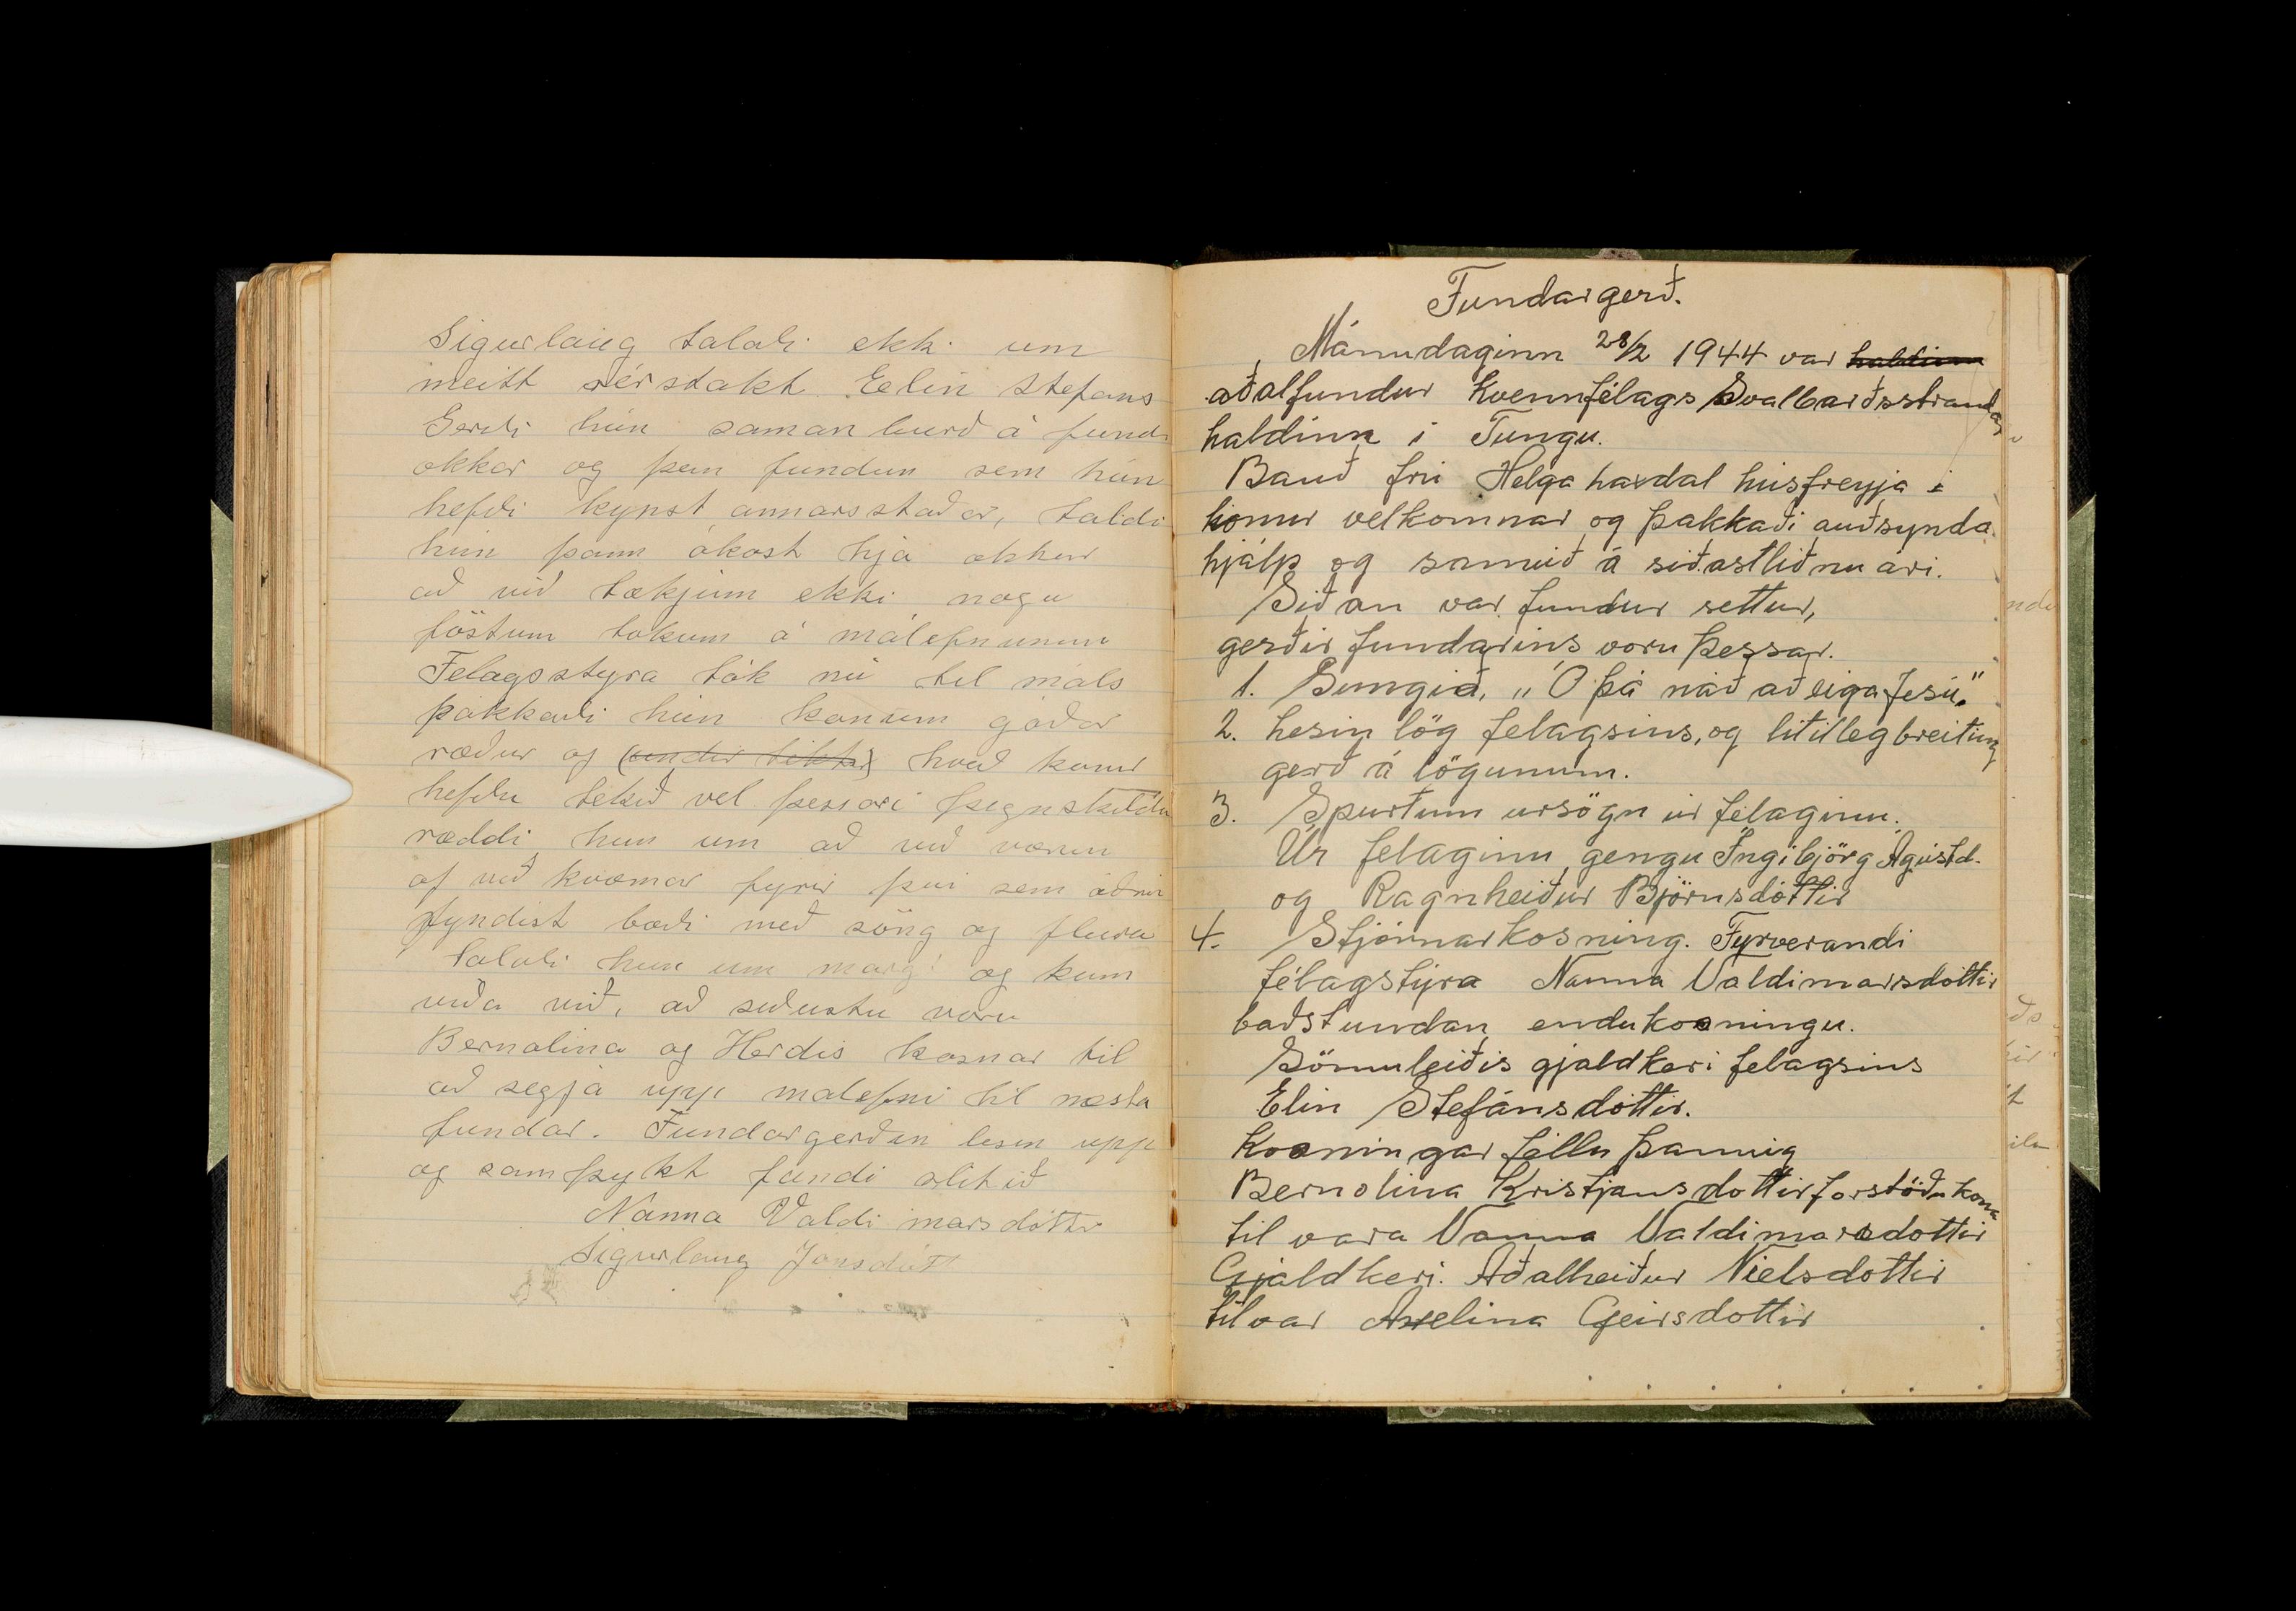 Sigurlaug talaði ekki um
neitt sérstakt. Eelín Stefans
Gerði hún saman burð á fundi
okkar og þem fundun sem hún
hefði kynst annarsstaðar, taldi
hún þann ókost hjá okkur
að við tækjum ekki nogu
föstum tokum á málefnunum
Felagsstyra tók nú til máls
þakkaði hún konum góðar
ræður og (undir tektir) hvað konur
hefðu tekið vel þessari þegnskildu
ræddi hun um að við værum
of við kvæmar fyrir því sem öðrum
fyndist bæði með söng og fleira
talaði hun um margt og kum
viða við, að siðustu voru
Bernolina og Herdis kosnar til
að segja upp malefni til næsta
fundar. Fundargerðin lesin upp
og samþykt fundi slitið
Nanna Valdimarsdóttir
Sigurlaug Jónsdótt
Fundargerð.
Mánudaginn 28/2 1944 var haldinn
aðalfundur Kvennfélags Svalbarðsstrandar
haldinn i Tungu.
Bauð frú Helga haxdal húsfreyja i
konur velkomnar og þakkaði auðsynda
hjálp og samuið á siðastliðnu ári.
Siðan var fundur settur,
gerðir fundarins voru þessar.
1. Sungið, „Ó þá náð að eiga Jesú."
2. Lesin lög felagsins, og litilleg breiting
gerð á lögunum.
3. Spurtum ursögn úr félaginu.
Úr felaginu gengu Ingibjörg Ágústd.
og Ragnheiður Björnsdóttir
4. Stjórnarkosning. Fyrverandi
félagstýra Nanna Valdimarsdottir
baðst undan endukosningu.
Sömuleiðis gjaldkeri felagsins
Elin Stefánsdóttir.
Kosningar féllu þannig
Bernolina Kristjansdottir forstöðukona
til vara Nanna Valdimarsdottir
Gjaldkeri. Aðalheiður Nielsdottir
til var Axelina Geirsdottir